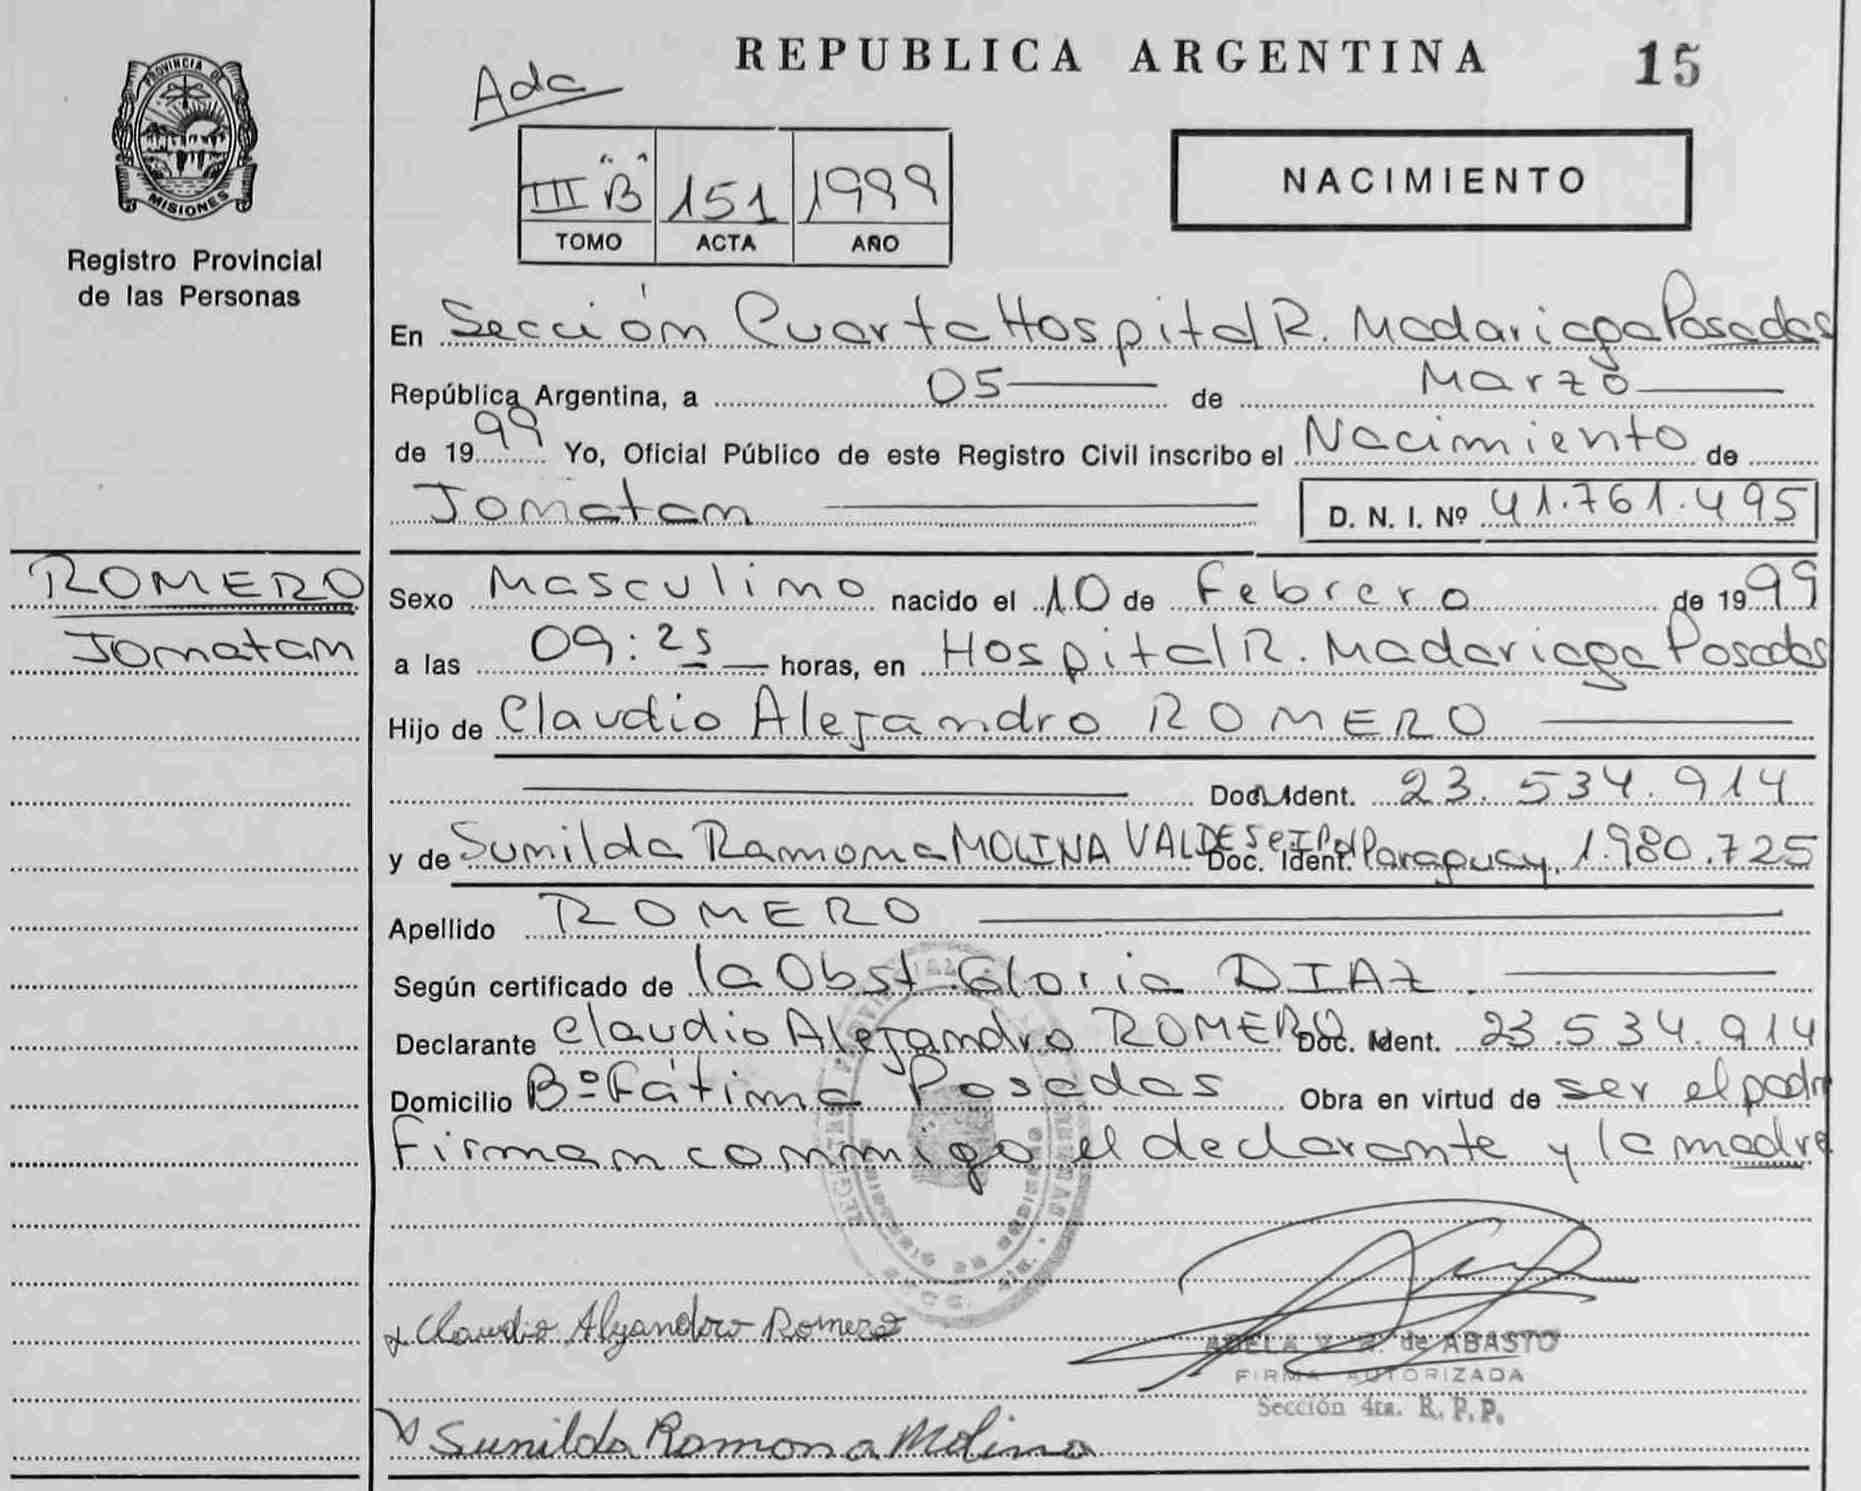 REPUBLICA ARGENTINA 15
Ada
PROVINCIA DE
MISIONES
Registro Provincial
de las Personas
III "B" 151 1999
TOMO ACTA AÑO
NACIMIENTO
En Sección Cuarta Hospital R. Madariaga Posadas
República Argentina, a 05 de Marzo
de 1999 Yo, Oficial Público de este Registro Civil inscribo el Nacimiento de
Jonatan D. N. I. Nº 41.761.495
ROMERO
Jonatan
Sexo Masculino nacido el 10 de Febrero de 1999
a las 09:25 horas, en Hospital R. Madariaga Posadas
Hijo de Claudio Alejandro ROMERO
Doc. Ident. 23.534.914
y de Sunilda Ramona MOLINA VALDES Doc. Ident. Paraguay, 1.980.725
Apellido ROMERO
Según certificado de la Obst. Gloria DIAZ.
Declarante Claudio Alejandro ROMERO Doc. Ident. 23.534.914
Domicilio Bº Fátima Posadas Obra en virtud de ser el padre
Firman conmigo el declarante y la madre
Claudio Alejandro Romero
ADELA V. de ABASTO
FIRMA AUTORIZADA
Sección 4ta. R. P. P.
Sunilda Ramona Molina